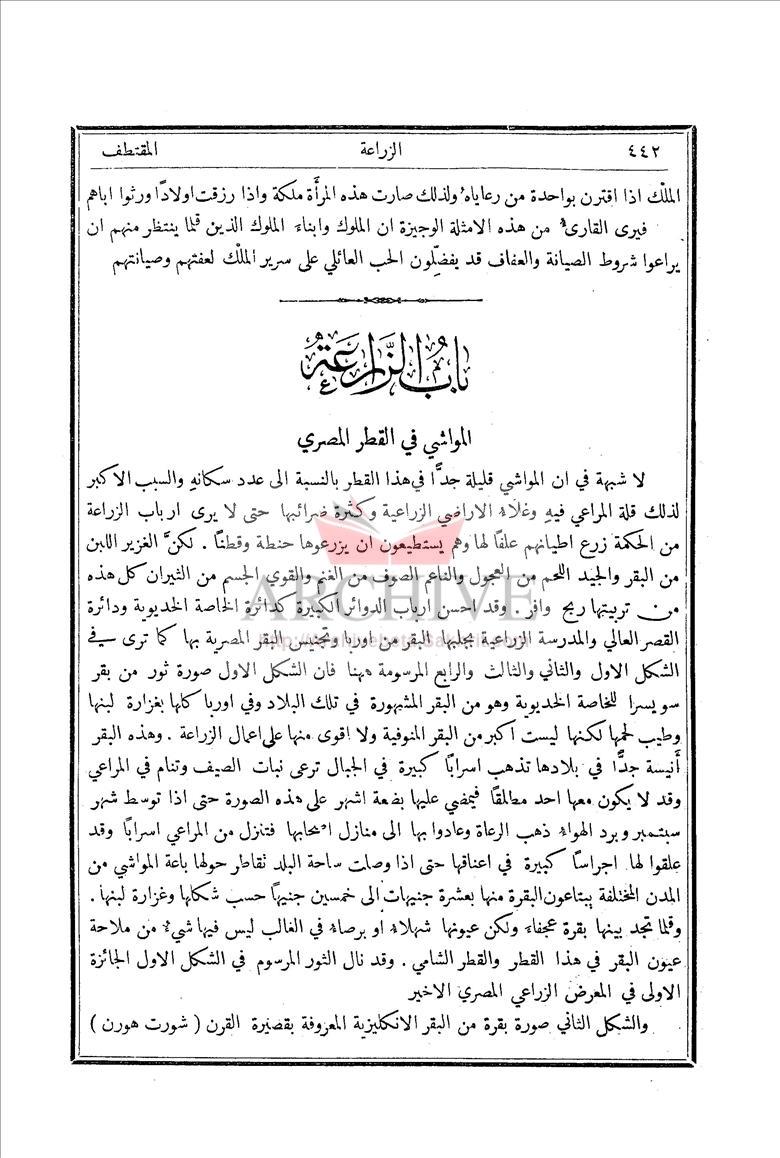 ٤٤٢ الزراعة المقتطف
الملْك اذا اقترن بواحدة من رعاياه ولذلك صارت هذه المرأَة ملكة واذا رزقت اولادًا ورثوا اباهم
فيرى القارىء من هذه الامثلة الوجيزة ان الملوك وابناء الملوك الذين قلما ينتظر منهم ان
يراعوا شروط الصيانة والعفاف قد يفضّلون الحب العائلي على سرير الملْك لعفتهم وصيانتهم
باب الزراعة
المواشي في القطر المصري
لا شبهة في ان المواشي قليلة جدًّا في هذا القطر بالنسبة الى عدد سكانهِ والسبب الاكبر
لذلك قلة المراعي فيهِ وغلاء الاراضي الزراعية وكثرة ضرائبها حتى لا يرى ارباب الزراعة
من الحكمة زرع اطيانهم علفًا لها وهم يستطيعون ان يزرعوها حنطة وقطنًا . لكنَّ الغزير اللبن
من البقر والجيد اللحم من العجول والناعم الصوف من الغنم والقوي الجسم من الثيران كل هذه
من تربيتها ربح وافر . وقد احسن ارباب الدوائر الكبيرة كدائرة الخاصة الخديوية ودائرة
القصر العالي والمدرسة الزراعية بجلبها البقر من اوربا وتجنيس البقر المصرية بها كما ترى في
الشكل الاول والثاني والثالث والرابع المرسومة هنا فان الشكل الاول صورة ثور من بقر
سويسرا للخاصة الخديوية وهو من البقر المشهورة في تلك البلاد وفي اوربا كلها بغزارة لبنها
وطيب لحمها لكنها ليست اكبر من البقر المنوفية ولا اقوى منها على اعمال الزراعة . وهذه البقر
أَنيسة جدًّا في بلادها تذهب اسرابًا كبيرة في الجبال ترعى نبات الصيف وتنام في المراعي
وقد لا يكون معها احد مطلقًا فيمضي عليها بضعة اشهر على هذه الصورة حتى اذا توسط شهر
سبتمبر وبرد الهواء ذهب الرعاة وعادوا بها الى منازل اصحابها فتنزل من المراعي اسرابًا وقد
علقوا لها اجراسًا كبيرة في اعناقها حتى اذا وصلت ساحة البلد تقاطر حولها باعة المواشي من
المدن المختلفة يبتاعون البقرة منها بعشرة جنيهات الى خمسين جنيهًا حسب شكلها وغزارة لبنها .
وقلما تجد بينها بقرة عجفاء ولكن عيونها شهلاء او برصاء في الغالب ليس فيها شيء من ملاحة
عيون البقر في هذا القطر والقطر الشامي . وقد نال الثور المرسوم في الشكل الاول الجائزة
الاولى في المعرض الزراعي المصري الاخير
والشكل الثاني صورة بقرة من البقر الانكليزية المعروفة بقصيرة القرن ( شورت هورن )
ARCHIVE